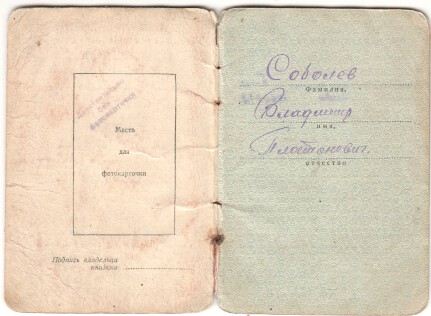 Место
для
фотокарточки
Подпись владельца
книжки
Соболев
Фамилия,
Владимир
имя,
Платонович
отчество